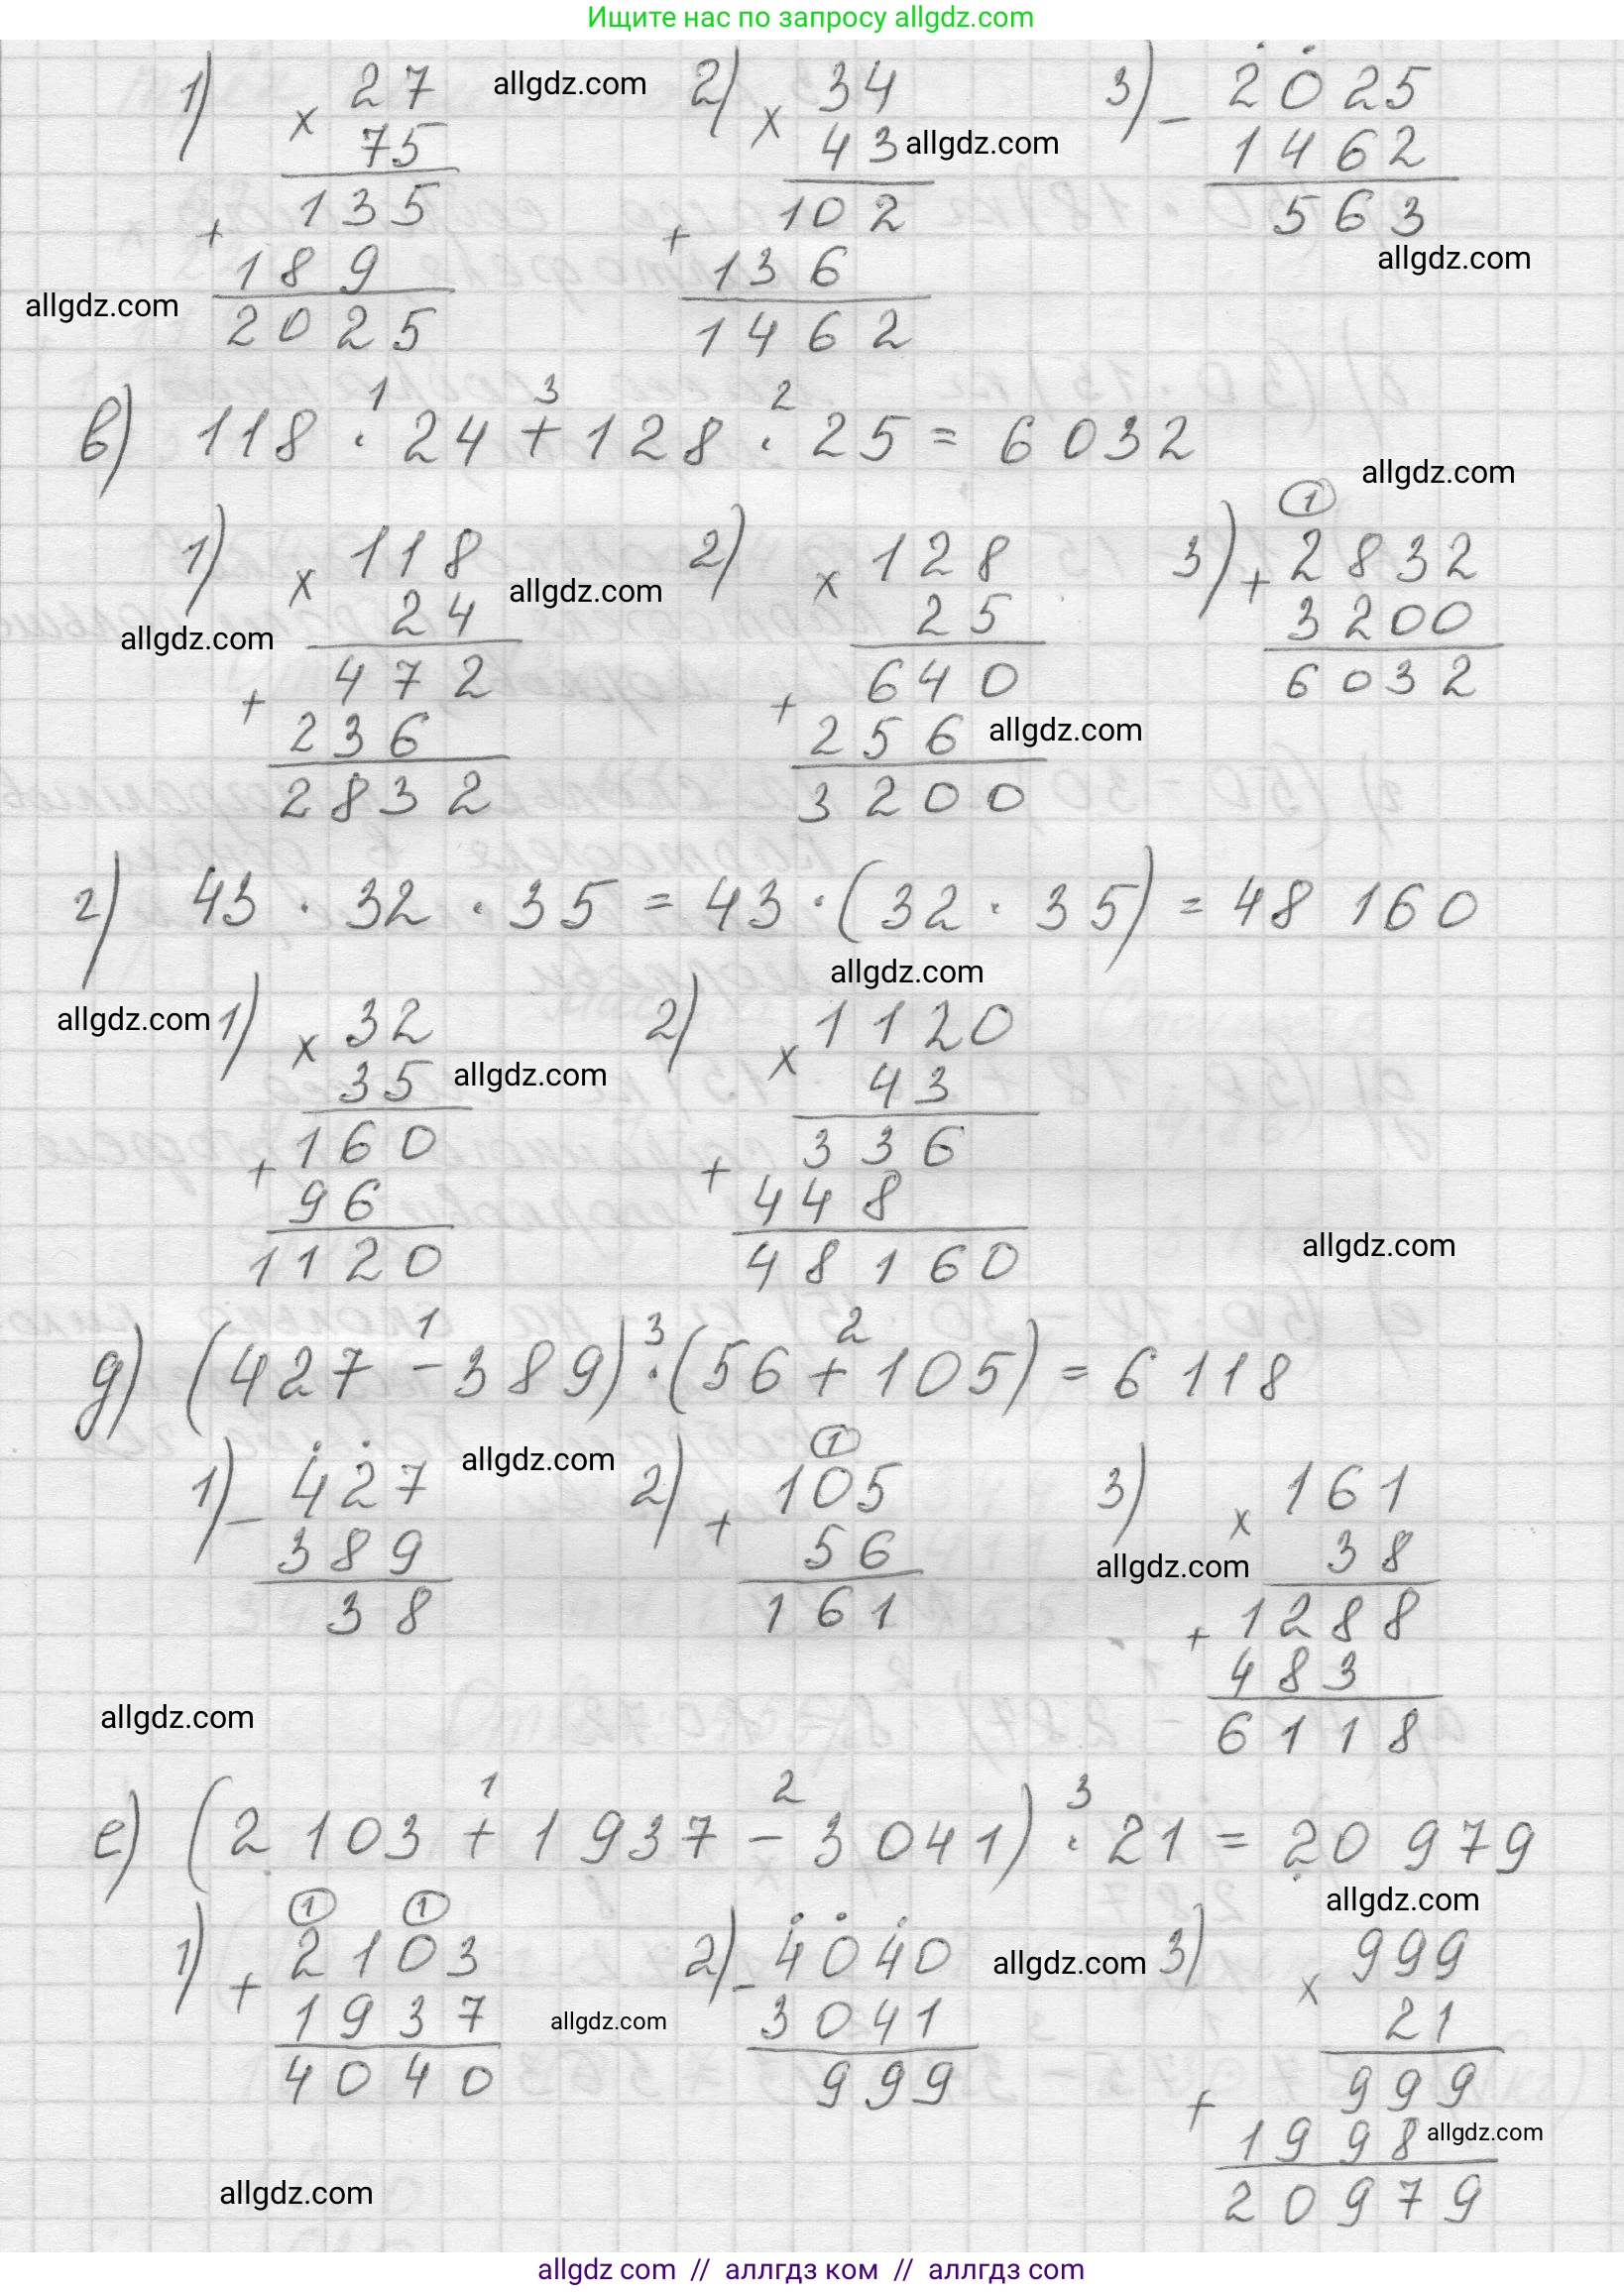 Ищите нас по запросу allgdz.com
1) × 27 allgdz.com 2) × 34 3) − 2025
75 43 allgdz.com 1462
135 102 563
+ + allgdz.com
189 136
allgdz.com 2025 1462
1 3 2
в) 118 · 24 + 128 · 25 = 6032
allgdz.com
1
1) × 118 allgdz.com 2) × 128 3) + 2832
allgdz.com 24 25 3200
472 640 6032
+ 236 + 256 allgdz.com
2832 3200
г) 43 · 32 · 35 = 43 · (32 · 35) = 48 160
allgdz.com
allgdz.com 1) × 32 2) × 1120
35 allgdz.com 43
160 336
+ 96 + 448
1120 48160 allgdz.com
1 3 2
д) (427 − 389) · (56 + 105) = 6118
1
1) − 427 allgdz.com 2) + 105 3) × 161
389 56 allgdz.com 38
38 161 1288
+ 483
allgdz.com 6118
1 2 3
е) (2 103 + 1 937 − 3 041) · 21 = 20 979
allgdz.com
1 1
1) + 2103 2) − 4040 allgdz.com 3) × 999
1937 allgdz.com 3041 21
4040 999 999
+ 1998 allgdz.com
allgdz.com 20979
allgdz com // аллгдз ком // allgdz.com